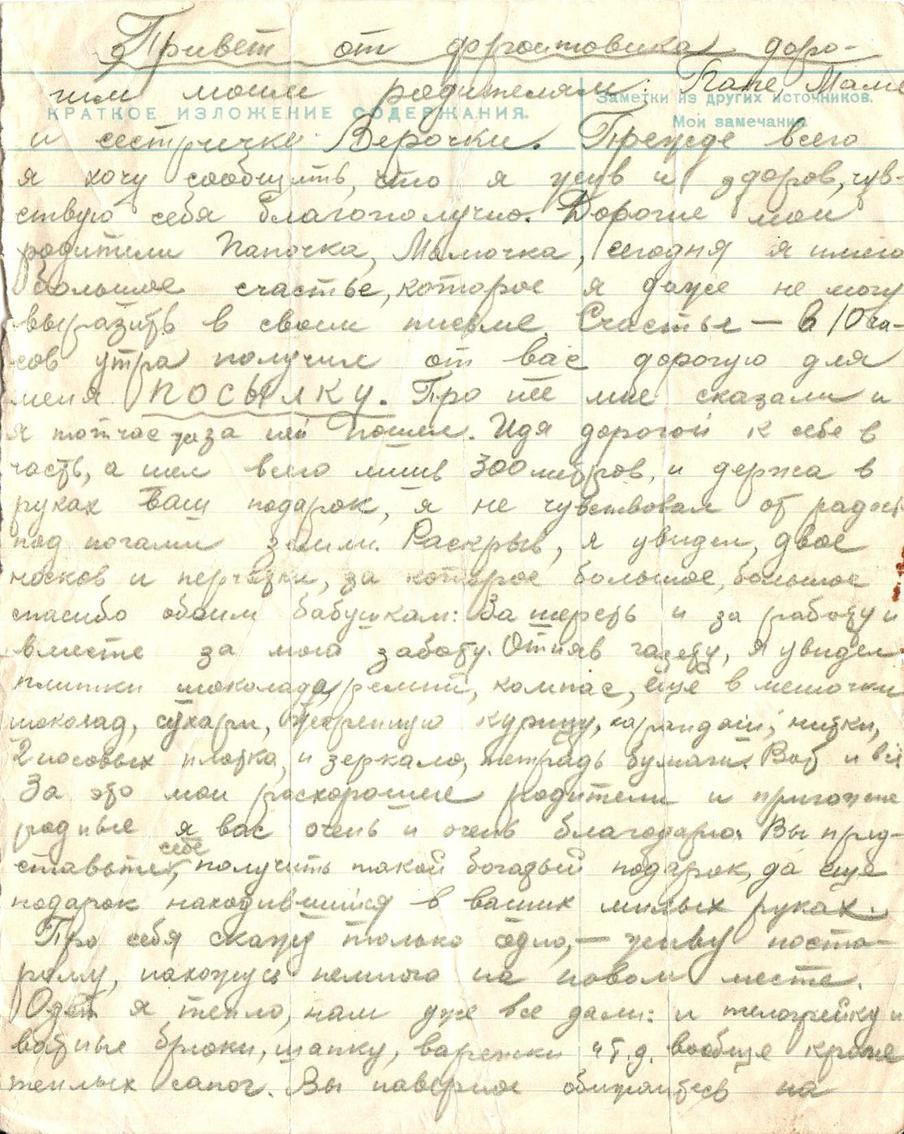 Привет от фронтовика доро-
гим моим родителям: Папе, Маме
КРАТКОЕ ИЗЛОЖЕНИЕ СОДЕРЖАНИЯ.
Заметки из других источников.
Мои замечания.
и сестричке Верочки. Прежде всего
я хочу сообщить, что я жив и здоров, чув-
ствую себя благополучно. Дорогие мои
родители Папочка, Мамочка, сегодня я имею
большое счастье, которое я даже не могу
выразить в своем письме. Счастье — в 10 ча-
сов утра получил от вас дорогую для
меня посылку. Про неё мне сказали и
я тотчас за ней пошел. Идя дорогой к себе в
часть, а шел всего лишь 300 метров, и держа в
руках Ваш подарок, я не чувствовал от радости
под ногами земли. Раскрыв, я увидел, двое
носков и перчатки, за которое большое, большое
спасибо обоим бабушкам: За шерсть и за работу и
вместе за мою заботу. Отняв газету, я увидел
плитки шоколада, ремни, компас, ещё в мешочки
шоколад, сухари, жаренную курицу, карандаш, нитки,
2 носовых платка, и зеркало, тетрадь бумаги. Вот и всё
За это мои расхорошие родители и пригожие
родные я вас очень и очень благодарю. Вы пред-
ставьте себе, получить такой богатый подарок, да ещё
подарок находившийся в ваших милых руках.
Про себя скажу только одно, — живу поста-
рому, нахожусь немного на новом месте.
Одет я тепло, нам уже все дали: и телогрейку и
ватные брюки, шапку, варежки и т.д. вообще кроме
теплых сапог. Вы наверное обижаетесь на